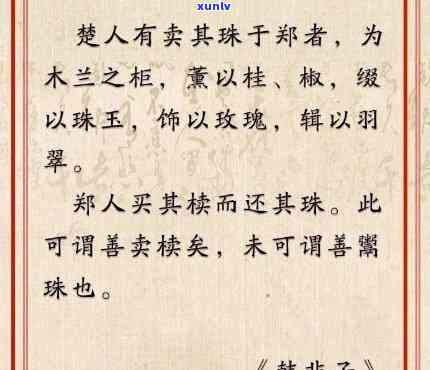 xunlv
楚人有卖其珠于郑者，为
木兰之柜，薰以桂、椒，缀
以珠玉，饰以玫瑰，辑以羽
翠。
郑人买其椟而还其珠。此
可谓善卖椟矣，未可谓善鬻
珠也。
《韩非子》